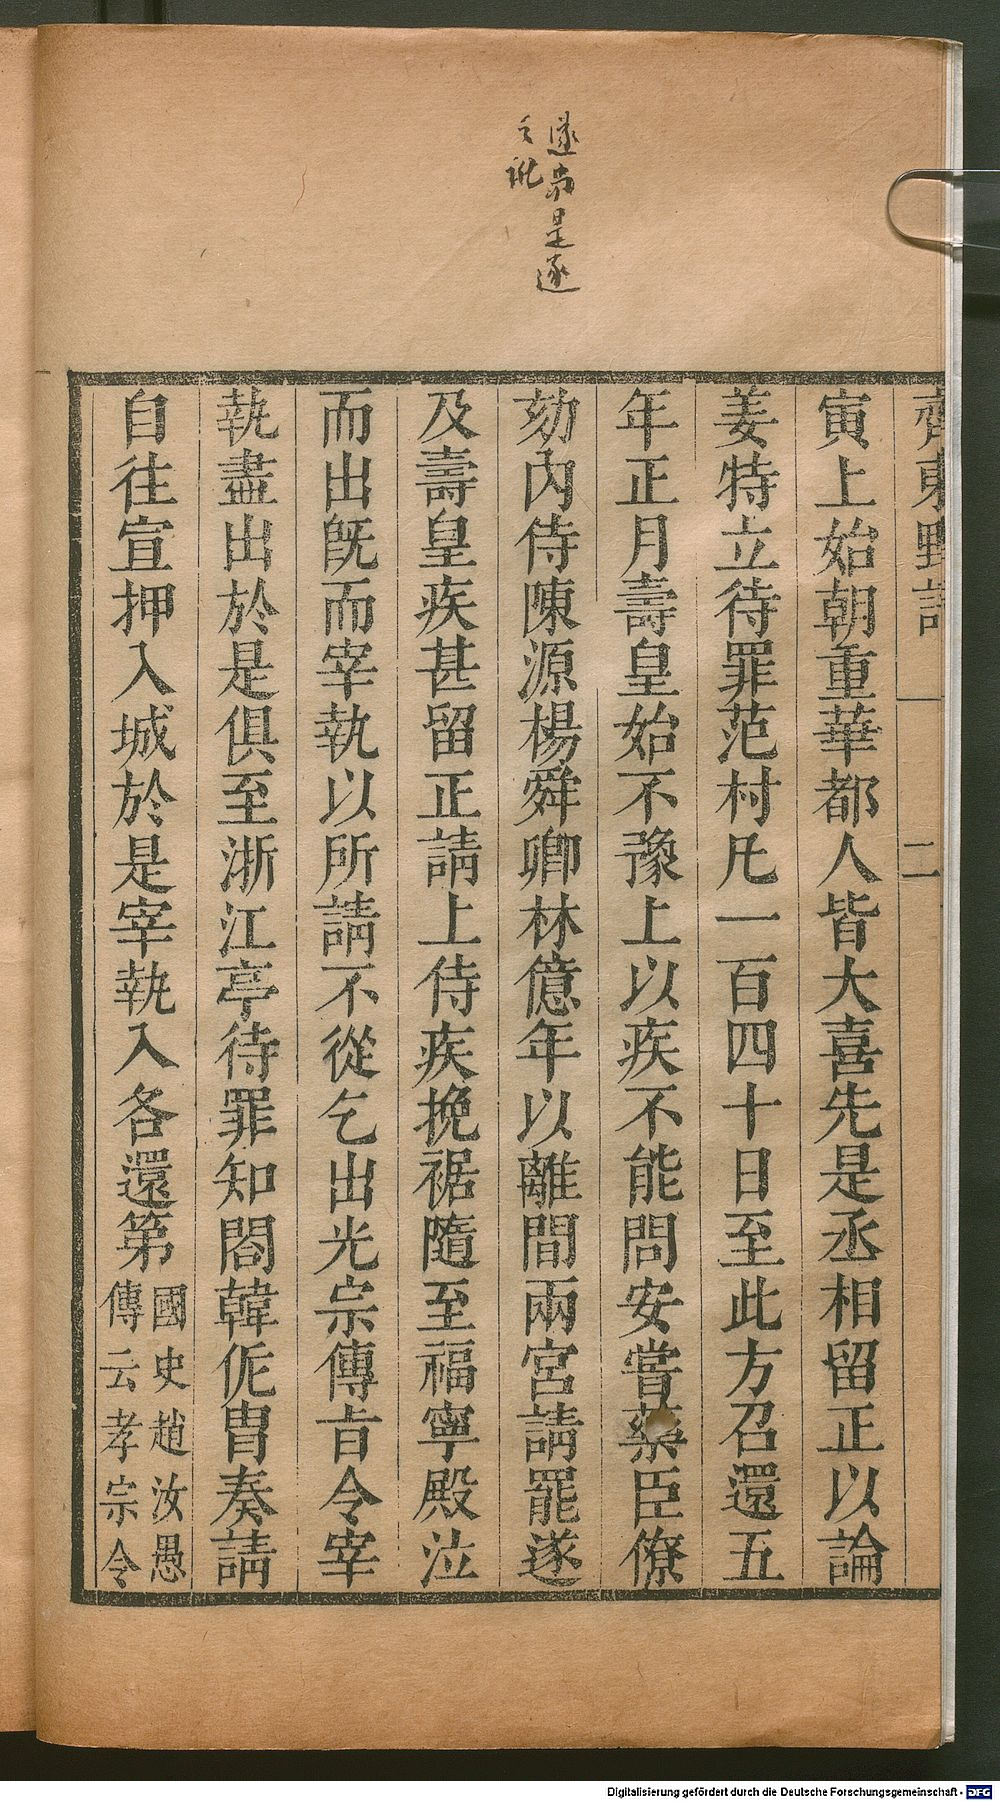 遂當是逐
之訛
齊東野語
二
寅上始朝重華都人皆大喜先是丞相留正以論
姜特立待罪范村凡一百四十日至此方召還五
年正月壽皇始不豫上以疾不能問安嘗藥臣僚
劾內侍陳源楊舜卿林億年以離間兩宮請罷遂
及壽皇疾甚留正請上侍疾挽裾隨至福寧殿泣
而出旣而宰執以所請不從乞出光宗傳旨令宰
執盡出於是俱至浙江亭待罪知閤韓侂冑奏請
自往宣押入城於是宰執入各還第
國史趙汝愚
傳云孝宗令
Digitalisierung gefördert durch die Deutsche Forschungsgemeinschaft - DFG